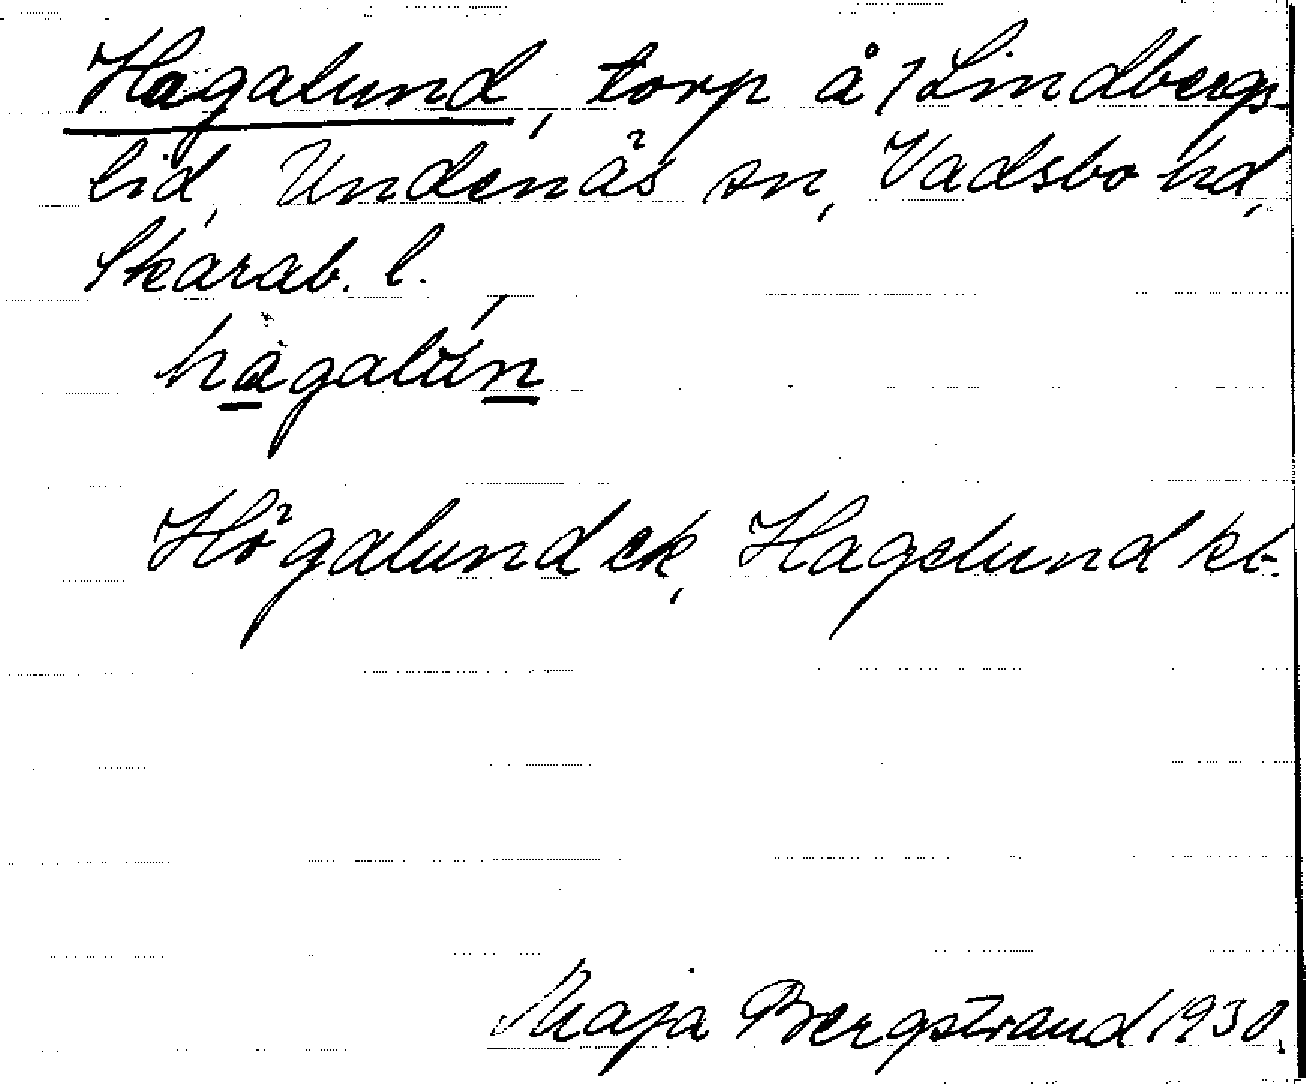 Hagalund, torp å 1 Lindbergs-
lid, Undenås sn, Vadsbo hd,
Skarab. l.
hagalun
Högalund ek, Hagelund kb.
Maja Bergstrand 1930.